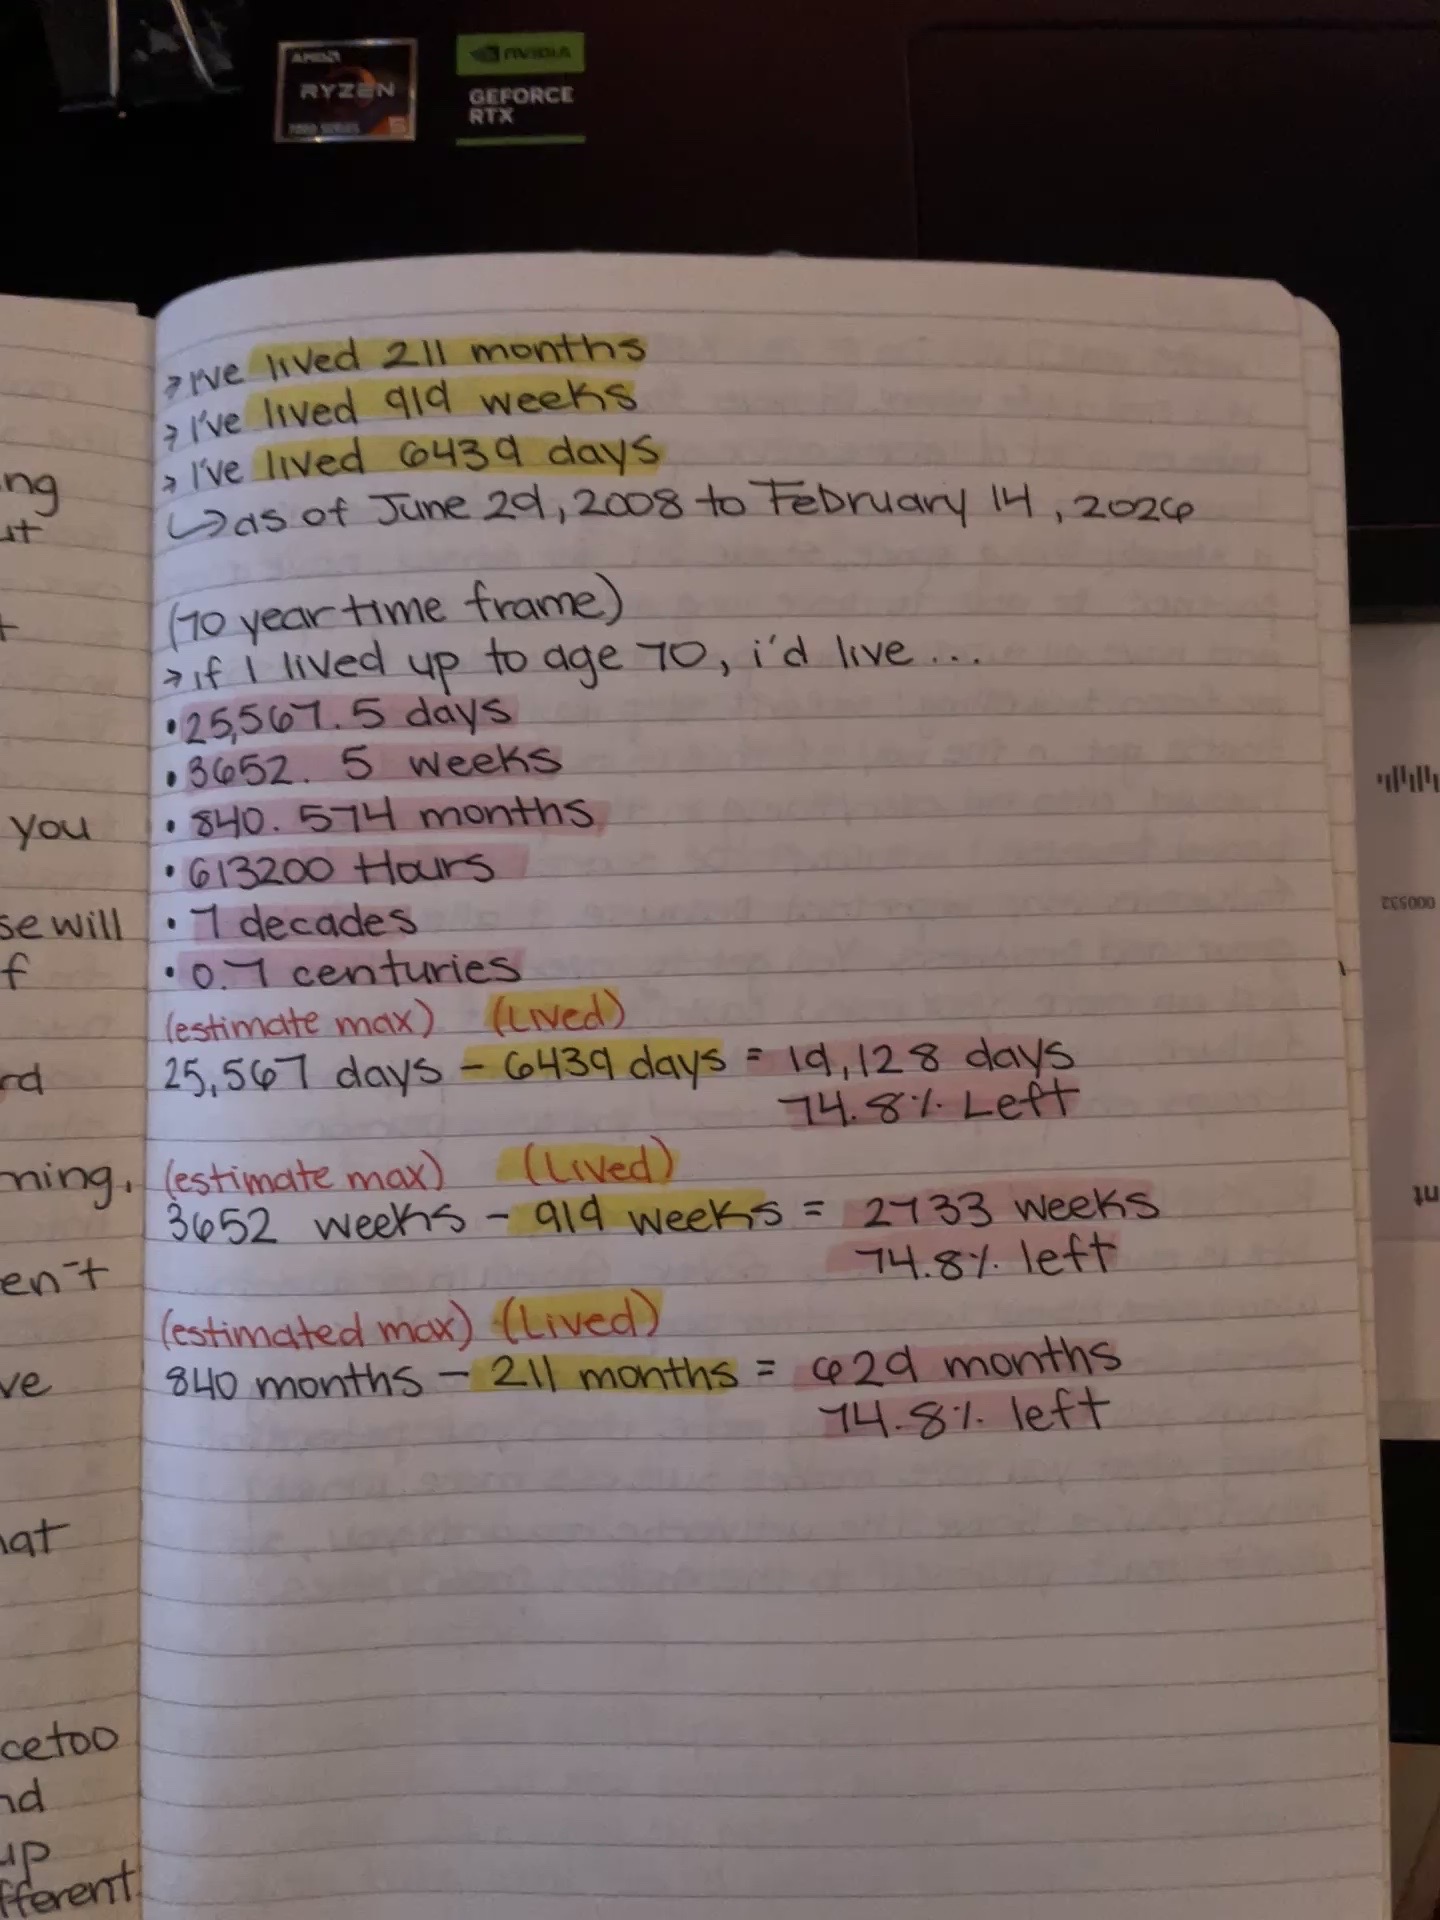 AMD
RYZEN
7000 SERIES 5
NVIDIA
GEFORCE
RTX
> I've lived 211 months
> I've lived 919 weeks
> I've lived 6439 days
↳ as of June 29, 2008 to February 14, 2026
(70 year time frame)
> if I lived up to age 70, i'd live...
• 25,567.5 days
• 3652. 5 weeks
• 840. 574 months
• 613200 Hours
• 7 decades
• 0.7 centuries
(estimate max) (Lived)
25,567 days - 6439 days = 19,128 days
74.8% Left
(estimate max) (Lived)
3652 weeks - 919 weeks = 2733 weeks
74.8% left
(estimated max) (Lived)
840 months - 211 months = 629 months
74.8% left
ng
ut
t
you
se will
f
rd
ning.
en't
ve
hat
ce too
nd
up
fferent
000532
nt